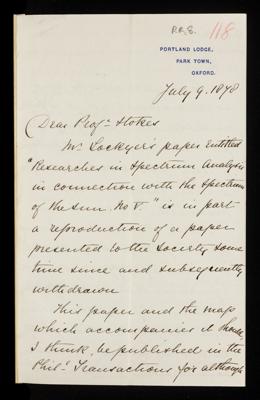 R.R.8.
118
PORTLAND LODGE,
PARK TOWN,
OXFORD.
July 9. 1878
Dear Prof.r Stokes
Mr. Lockyer's paper entitled
"Researches in Spectrum Analysis
in connection with the Spectrum
of the Sun. No V" is in part
a reproduction of a paper
presented to the Society some
time since and subsequently
withdrawn
This paper and the map
which accompanies it should,
I think, be published in the
Phil.l Transactions for although